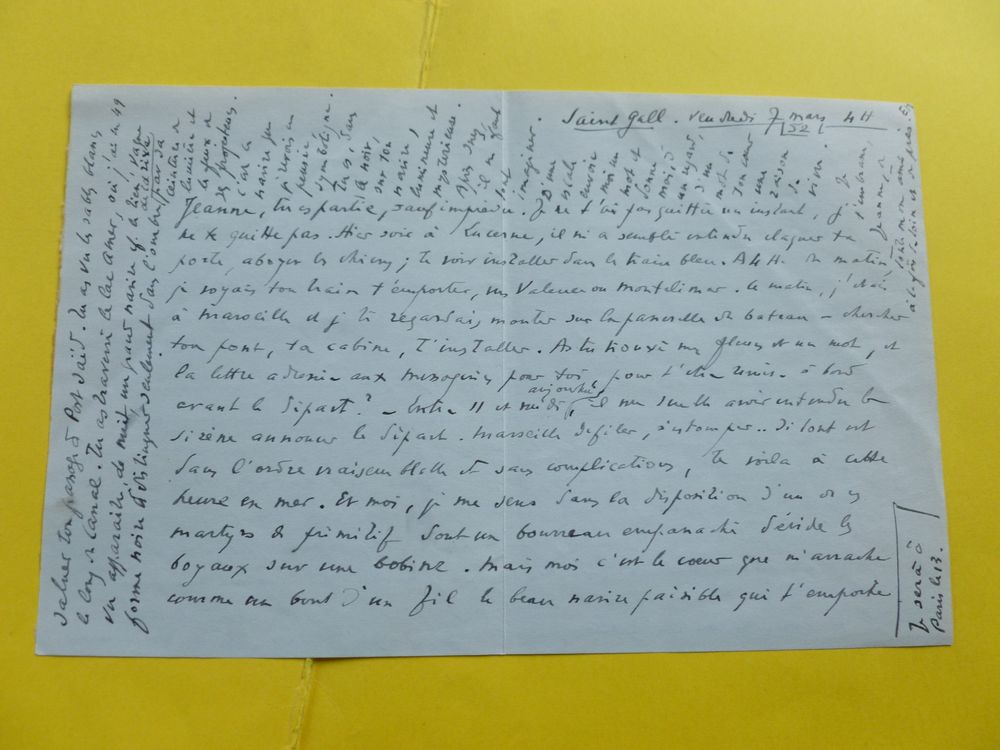 Saint Gall. Vendredi 7 mars 4H
52
Jeanne, tu es partie, sauf imprévu. Je ne t'ai pas quittée un instant, je
ne te quitte pas. Hier soir à Lucerne, il m'a semblé entendre claquer ta
porte, aboyer les chiens; te voir installer dans le train bleu. A 4H. du matin,
je voyais ton train t'emporter, vers Valence ou Montélimar. Le matin, j'étais
à Marseille et je te regardais monter sur la passerelle du bateau - chercher
ton pont, ta cabine, t'installer. As tu trouvé mes fleurs et un mot, et
la lettre adressée aux Messageries pour toi pour t'être remise à bord
avant le départ? - Entre 11 et midi, aujourd'hui, il me semble avoir entendu la
sirène annoncer le départ. Marseille défiler, s'estomper.. Si tout est
dans l'ordre vraisemblable et sans complications, te voilà à cette
heure en mer. Et moi, je me sens dans la disposition d'un de ces
martyrs de primitif dont un bourreau empanaché dévide les
boyaux sur une bobine. Mais moi c'est le coeur que m'arrache
comme un bout d'un fil le beau navire paisible qui t'emporte
Je serai à
Paris le 13.
Saluer ton passage à Port Saïd. Tu as vu les sables blancs
le long du canal. Tu as traversé les lacs amers, où j'ai en 49
vu apparaître de nuit un grand navire
forme noire et distinguée seulement dans l'ombre par sa
ceinture de
lumière et
les feux de
ses projecteurs.
c'était
navire que
pensée
symbolique.
dans
le noir,
sur ton
navire,
lumineuse et
mystérieuse.
imaginer.
D'une
escale
envoie
moi un
mot et
donne
moi, d'
un regard,
d'un
mot de
ton coeur
une
raison
de
vivre.
Je
t'embrasse,
Jeanne